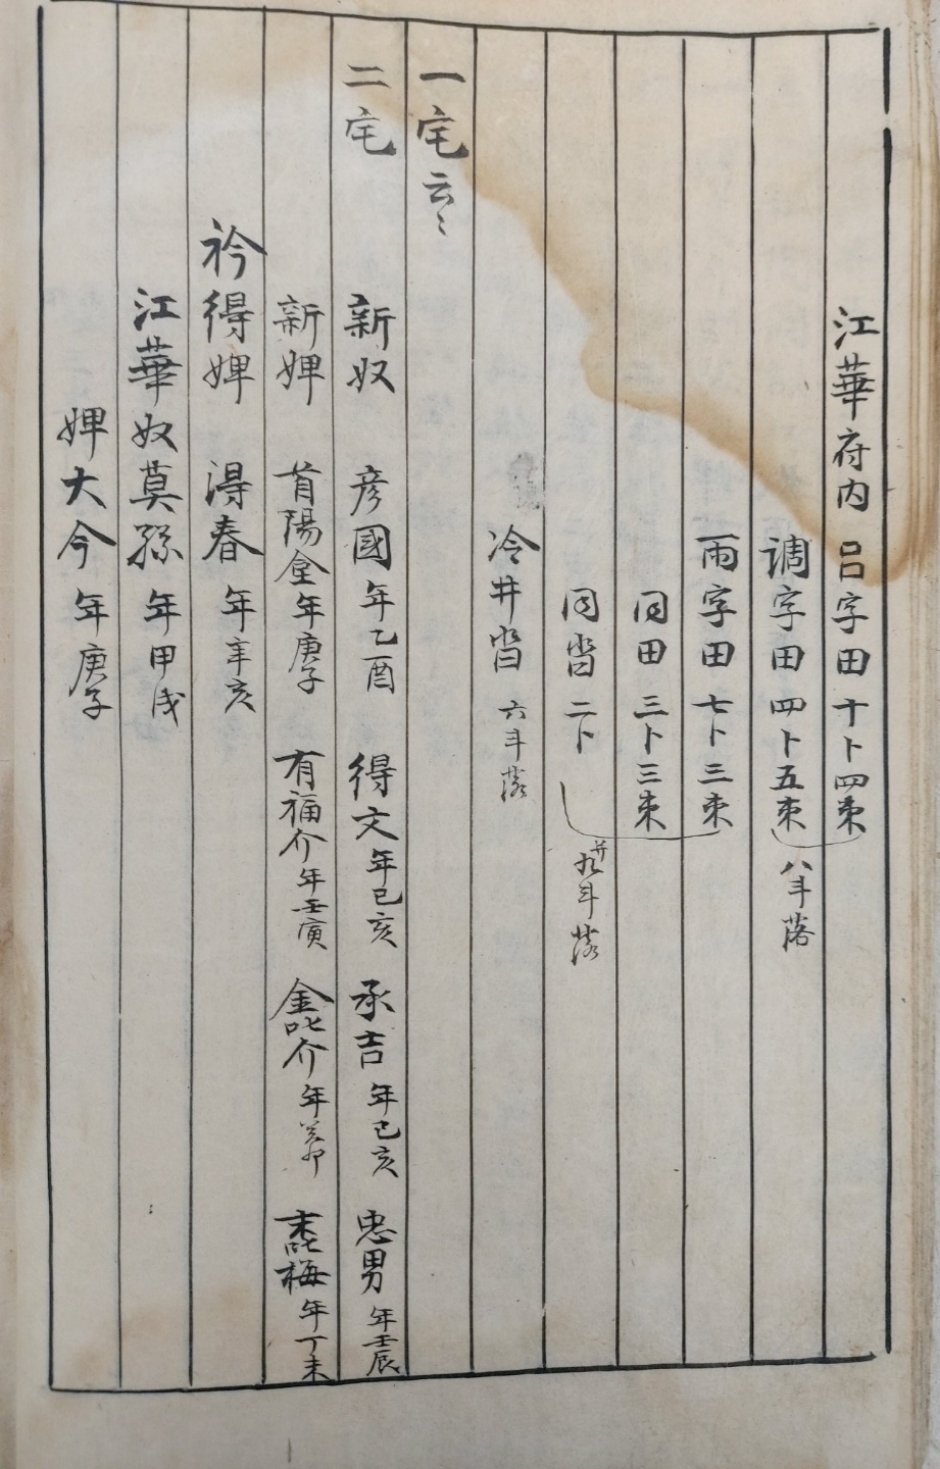 江華府内 呂字田 十卜四束
调字田 四卜五束 八斗落
雨字田 七卜三束
同田 三卜三束
同畓 二卜 并九斗落
冷井畓 六斗落
一宅云〻
二宅 新奴 彦國年乙酉 得文年己亥 承吉年己亥 忠男年壬辰
新婢 首陽金年庚子 有福介年壬寅 金叱介年癸卯 唜梅年丁未
衿得婢 得春年辛亥
江華奴莫孫年甲戌
婢大今年庚子